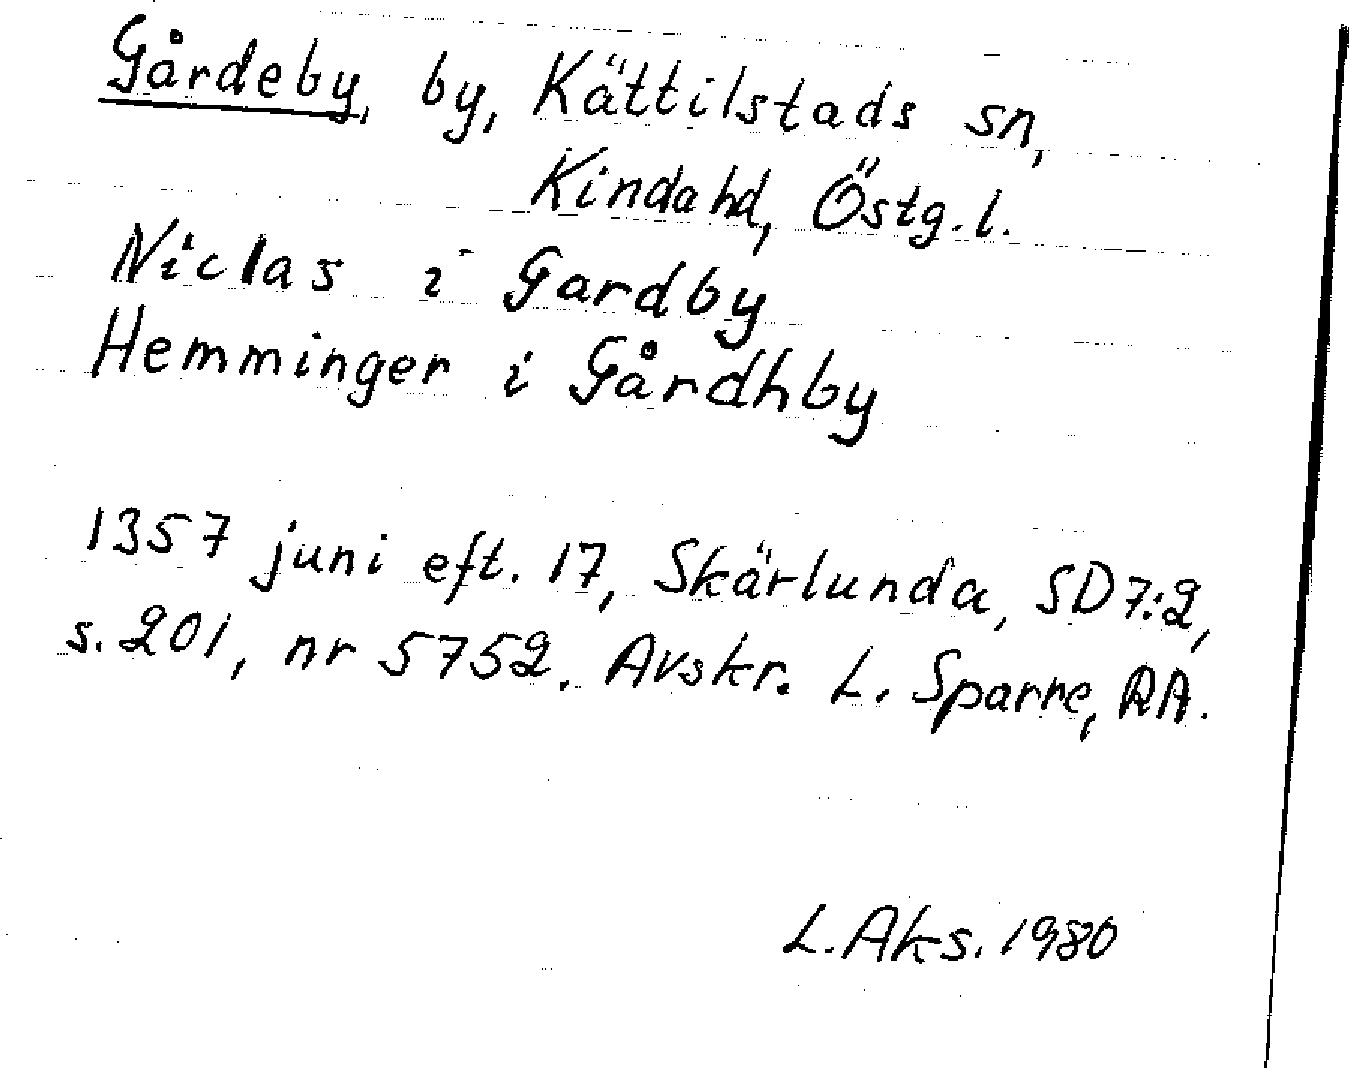 Gårdeby, by, Kättilstads sn,
Kinda hd, Östg. l.
Niclas i Gardby
Hemminger i Gårdhby
1357 juni eft. 17, Skärlunda, SD 7:2,
s. 201, nr 5752. Avskr. L. Sparre, RA.
L. Aks. 1980